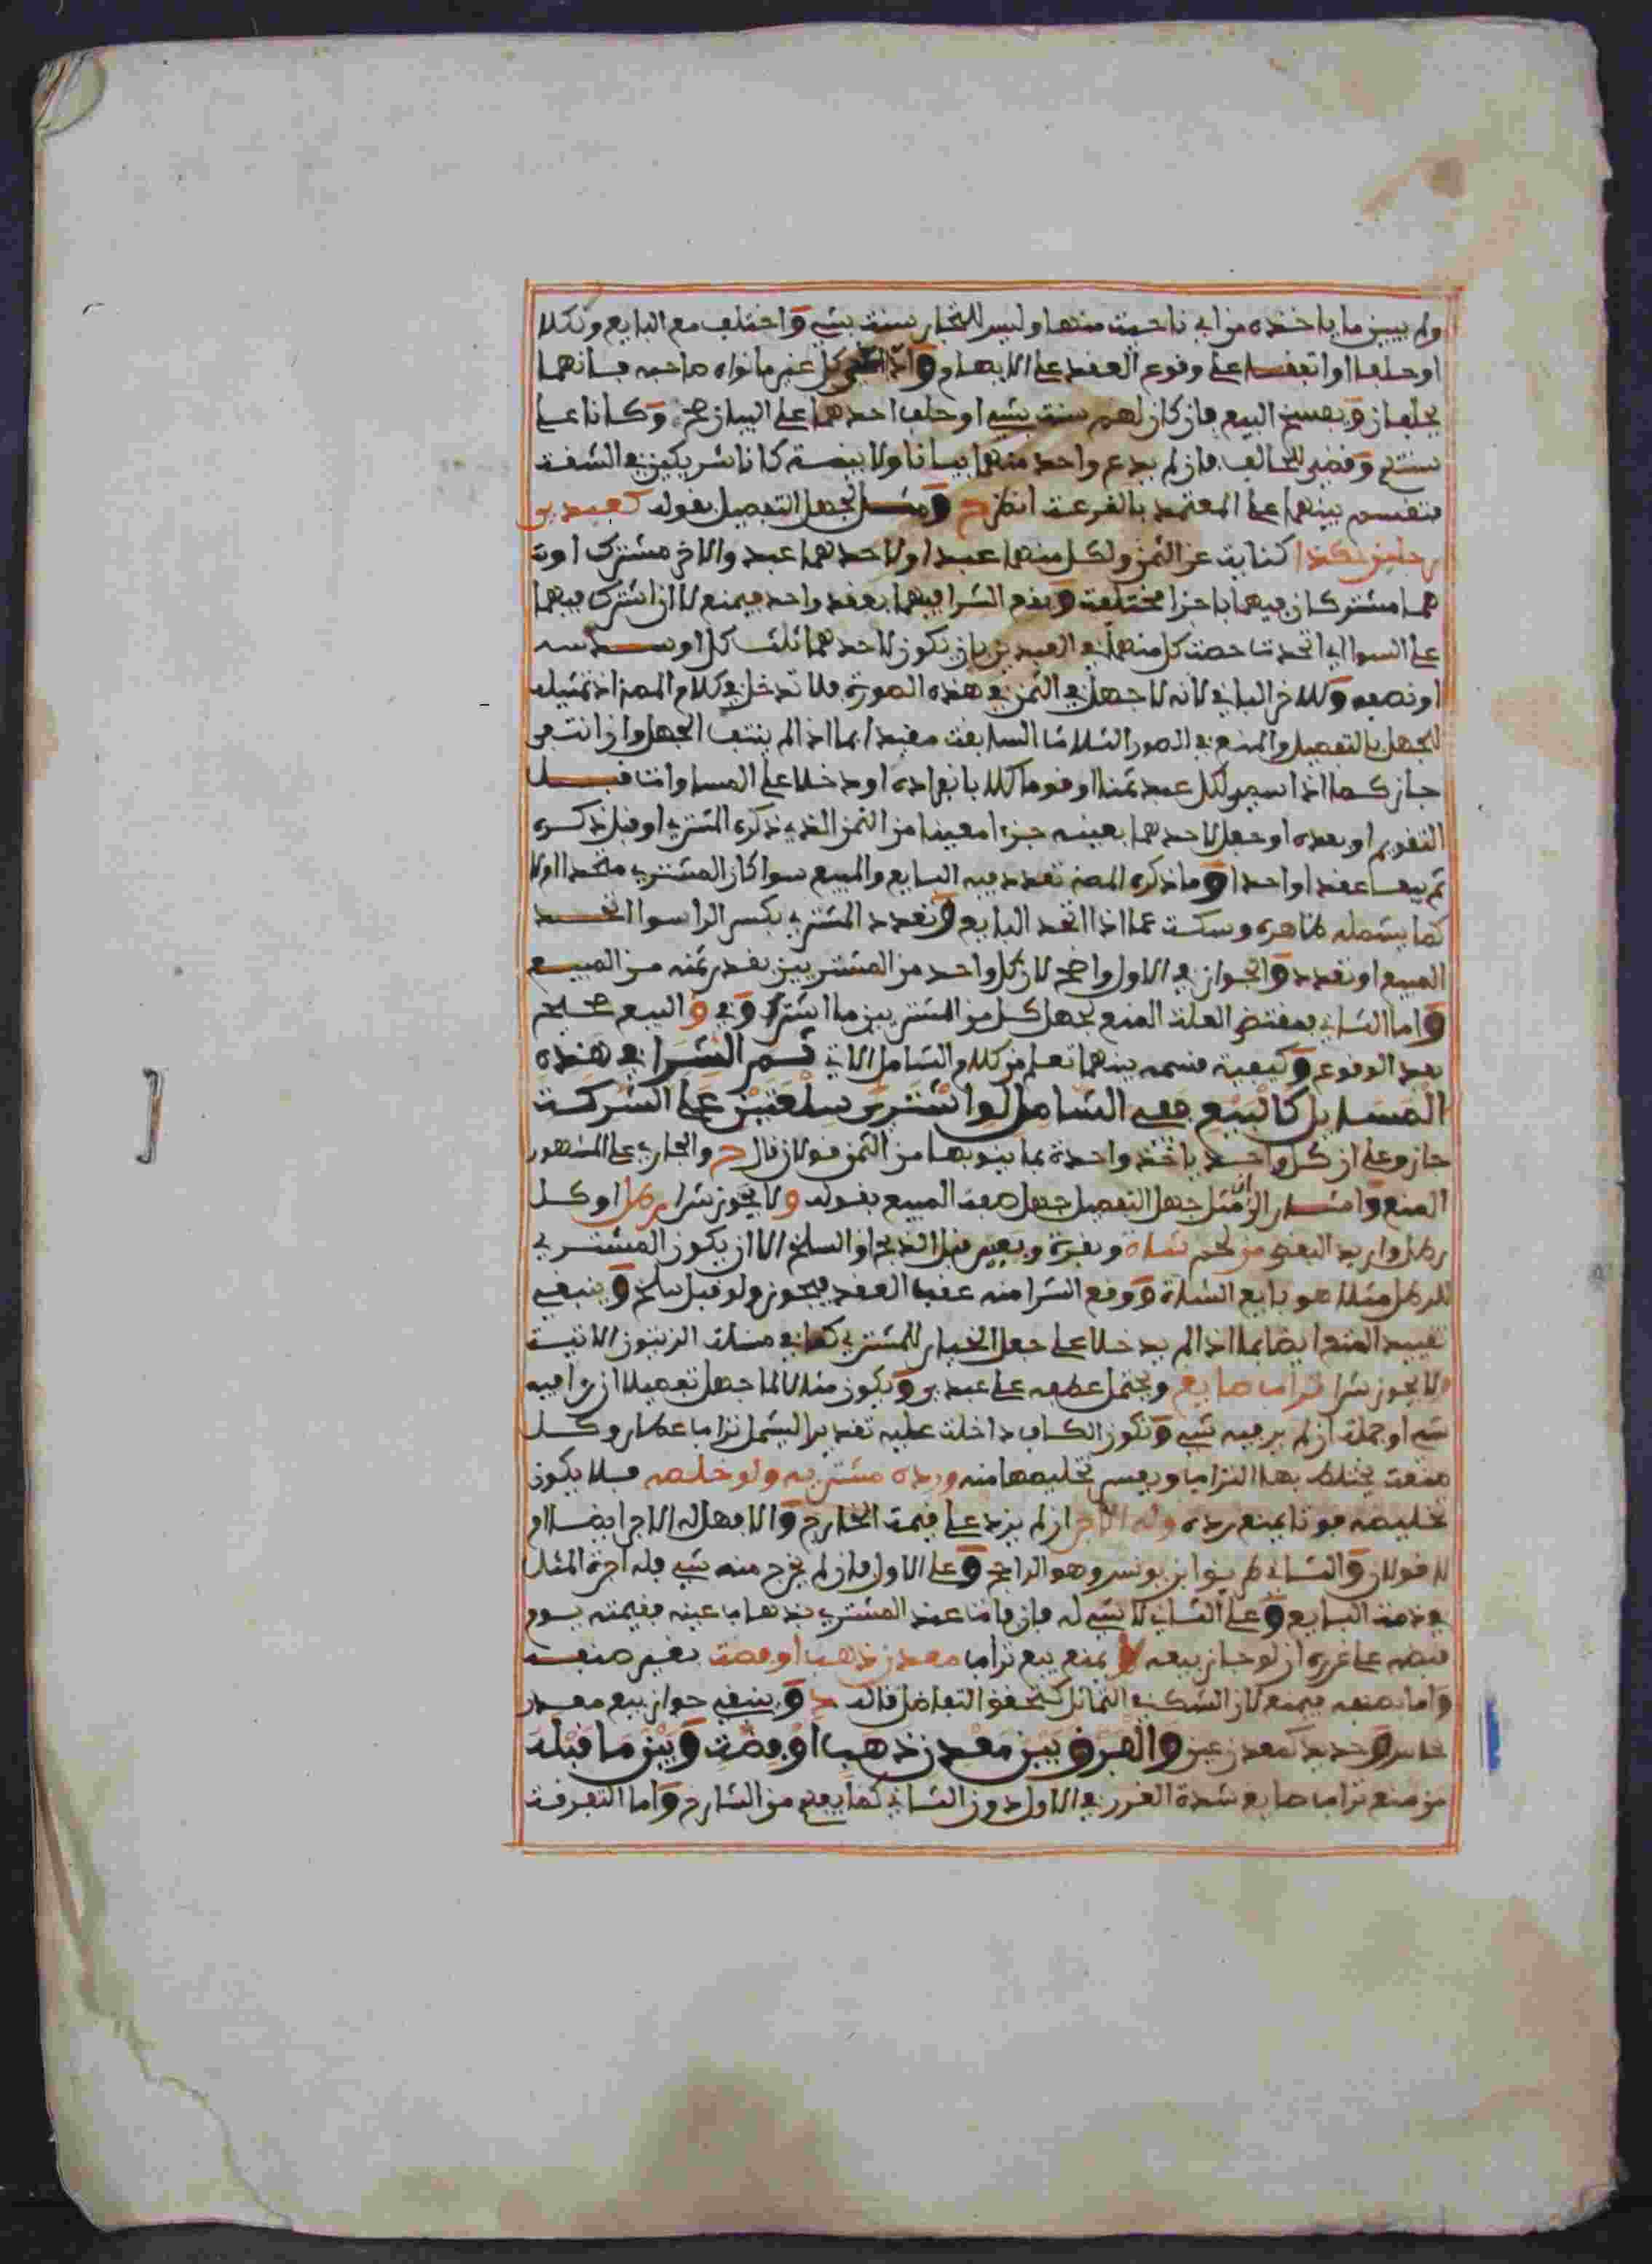 ولم يبين ما ياخذه من اي ناحية منها وليس للتجار سنة بشي واختلف مع البايع ونكلا
او حلفا او اتفقا على وقوع العقد على الابهام وادعى كل غير ما نواه صاحبه فانهما
يحلفان ويفسخ البيع فان كان لهم سنة بشي او حلف احدهما على البيان صح وكانا على
سنتهم وقضي للحالف فان لم يدع واحد منهما بيانا ولا بينة كانا شريكين في الشقة
فتقسم بينهما على المعتمد بالقرعة انظر ح ومثل لجهل التفصيل بقوله كعبدي
رجلين بكذا كناية عن الثمن ولكل منهما عبد او لاحدهما عبد والاخر مشترك اوه
هما مشتركان فيهما باجزا مختلفة وقع الشرا فيهما بعقد واحد فيمنع لا ان اشترك فيهما
على السوا اي اتحدت حصة كل منهما في العبدين بان يكون لاحدهما ثلث كل او سدسه
او نصفه وللاخر الباقي لانه لا جهل في الثمن في هذه الصورة فلا تدخل في كلام المص اذ تمثيله
لجهل بالتفصيل والمنع في الصور الثلاث السابقة مقيد بما اذا لم ينتف الجهل وان انتفى
جاز كما اذا سمي لكل عبد ثمنا او قوما كلا بانفراده او دخلا على المساواة قبل
التقويم او بعده او جعل لاحدهما بعينه جزءا معينا من الثمن الذي ذكره المشتري او قبل ذكره
ثم بيعا عقدا واحدا وما ذكره المص تعدد فيه البايع والمبيع سوا كان المشتري متحدا اولا
كما يشمله ظاهره وسكت عما اذا اتحد البايع وتعدد المشتري بكسر الرا سوا اتحد
المبيع او تعدد والجواز في الاول واضح لان كل واحد من المشتريين بقدر ثمنه من المبيع
واما الثاني فمقتضى العلة المنع لجهل كل من المشتريين ما اشتراه وفي البيع صحيح
بعد الوقوع وكيفية قسمه بينهما تعلم من كلام الشامل الاتي ثم الشرا في هذه
المسايل كالبيع ففي الشامل لو اشترى سلعتين على الشركة
جاز وعلى ان كل واحد ياخذ واحدة بما ينوبها من الثمن قولان قال ح والجاري على المشهور
المنع واشار الى مثل جهل التفصيل جهل صفة المبيع بقوله ولا يجوز شرا رطل او كل
رطل واريد البعض من لحم شاة وبقرة وبعير قبل الذبح او السلخ الا ان يكون المشتري
للرطل مثلا هو بايع الشاة ووقع الشرا منه عقب العقد فيجوز ولو قبل سلخ وينبغي
تقييد المنع ايضا بما اذا لم يدخلا على جعل الخيار للمشتري كما في مسئلة الزيتون الاتية
ولا يجوز شرا تراب صايغ ويحتمل عطفه على عبدي ويكون مثالا لما جهل تفصيلا ان راى فيه
شي او جملة ان لم ير فيه شي وتكون الكاف داخلة عليه تقديرا ليشمل تراب عطار وكل
صنعة يختلط بها التراب ويعسر تخليصها منه ورده مشتريه ولو خلصه فلا يكون
تخليصه فوتا يمنع رده وله الاجر ان لم يزد على قيمة الخارج والا فهل له الاجر ايضا ام
لا قولان والثاني طريق ابن يونس وهو الراجح وعلى الاول فان لم يخرج منه شي فله اجرة المثل
في ذمة البايع وعلى الثاني لا شي له فان فات عند المشتري بذهاب عينه فقيمته يوم
قبضه على غرره ان لو جاز بيعه لا يمنع بيع تراب معدن ذهب او فضة بغير صنفه
واما بصنفه فيمنع لان الشك في التماثل كتحقق التفاضل قاله د وينبغي جواز بيع معدن
نحاس وحديد كمعدن عين والفرق بين معدن ذهب او فضة وبين ما قبله
من منع تراب صايغ شدة الغرر في الاول دون الثاني كما يعلم من الشارح واما التفرقة